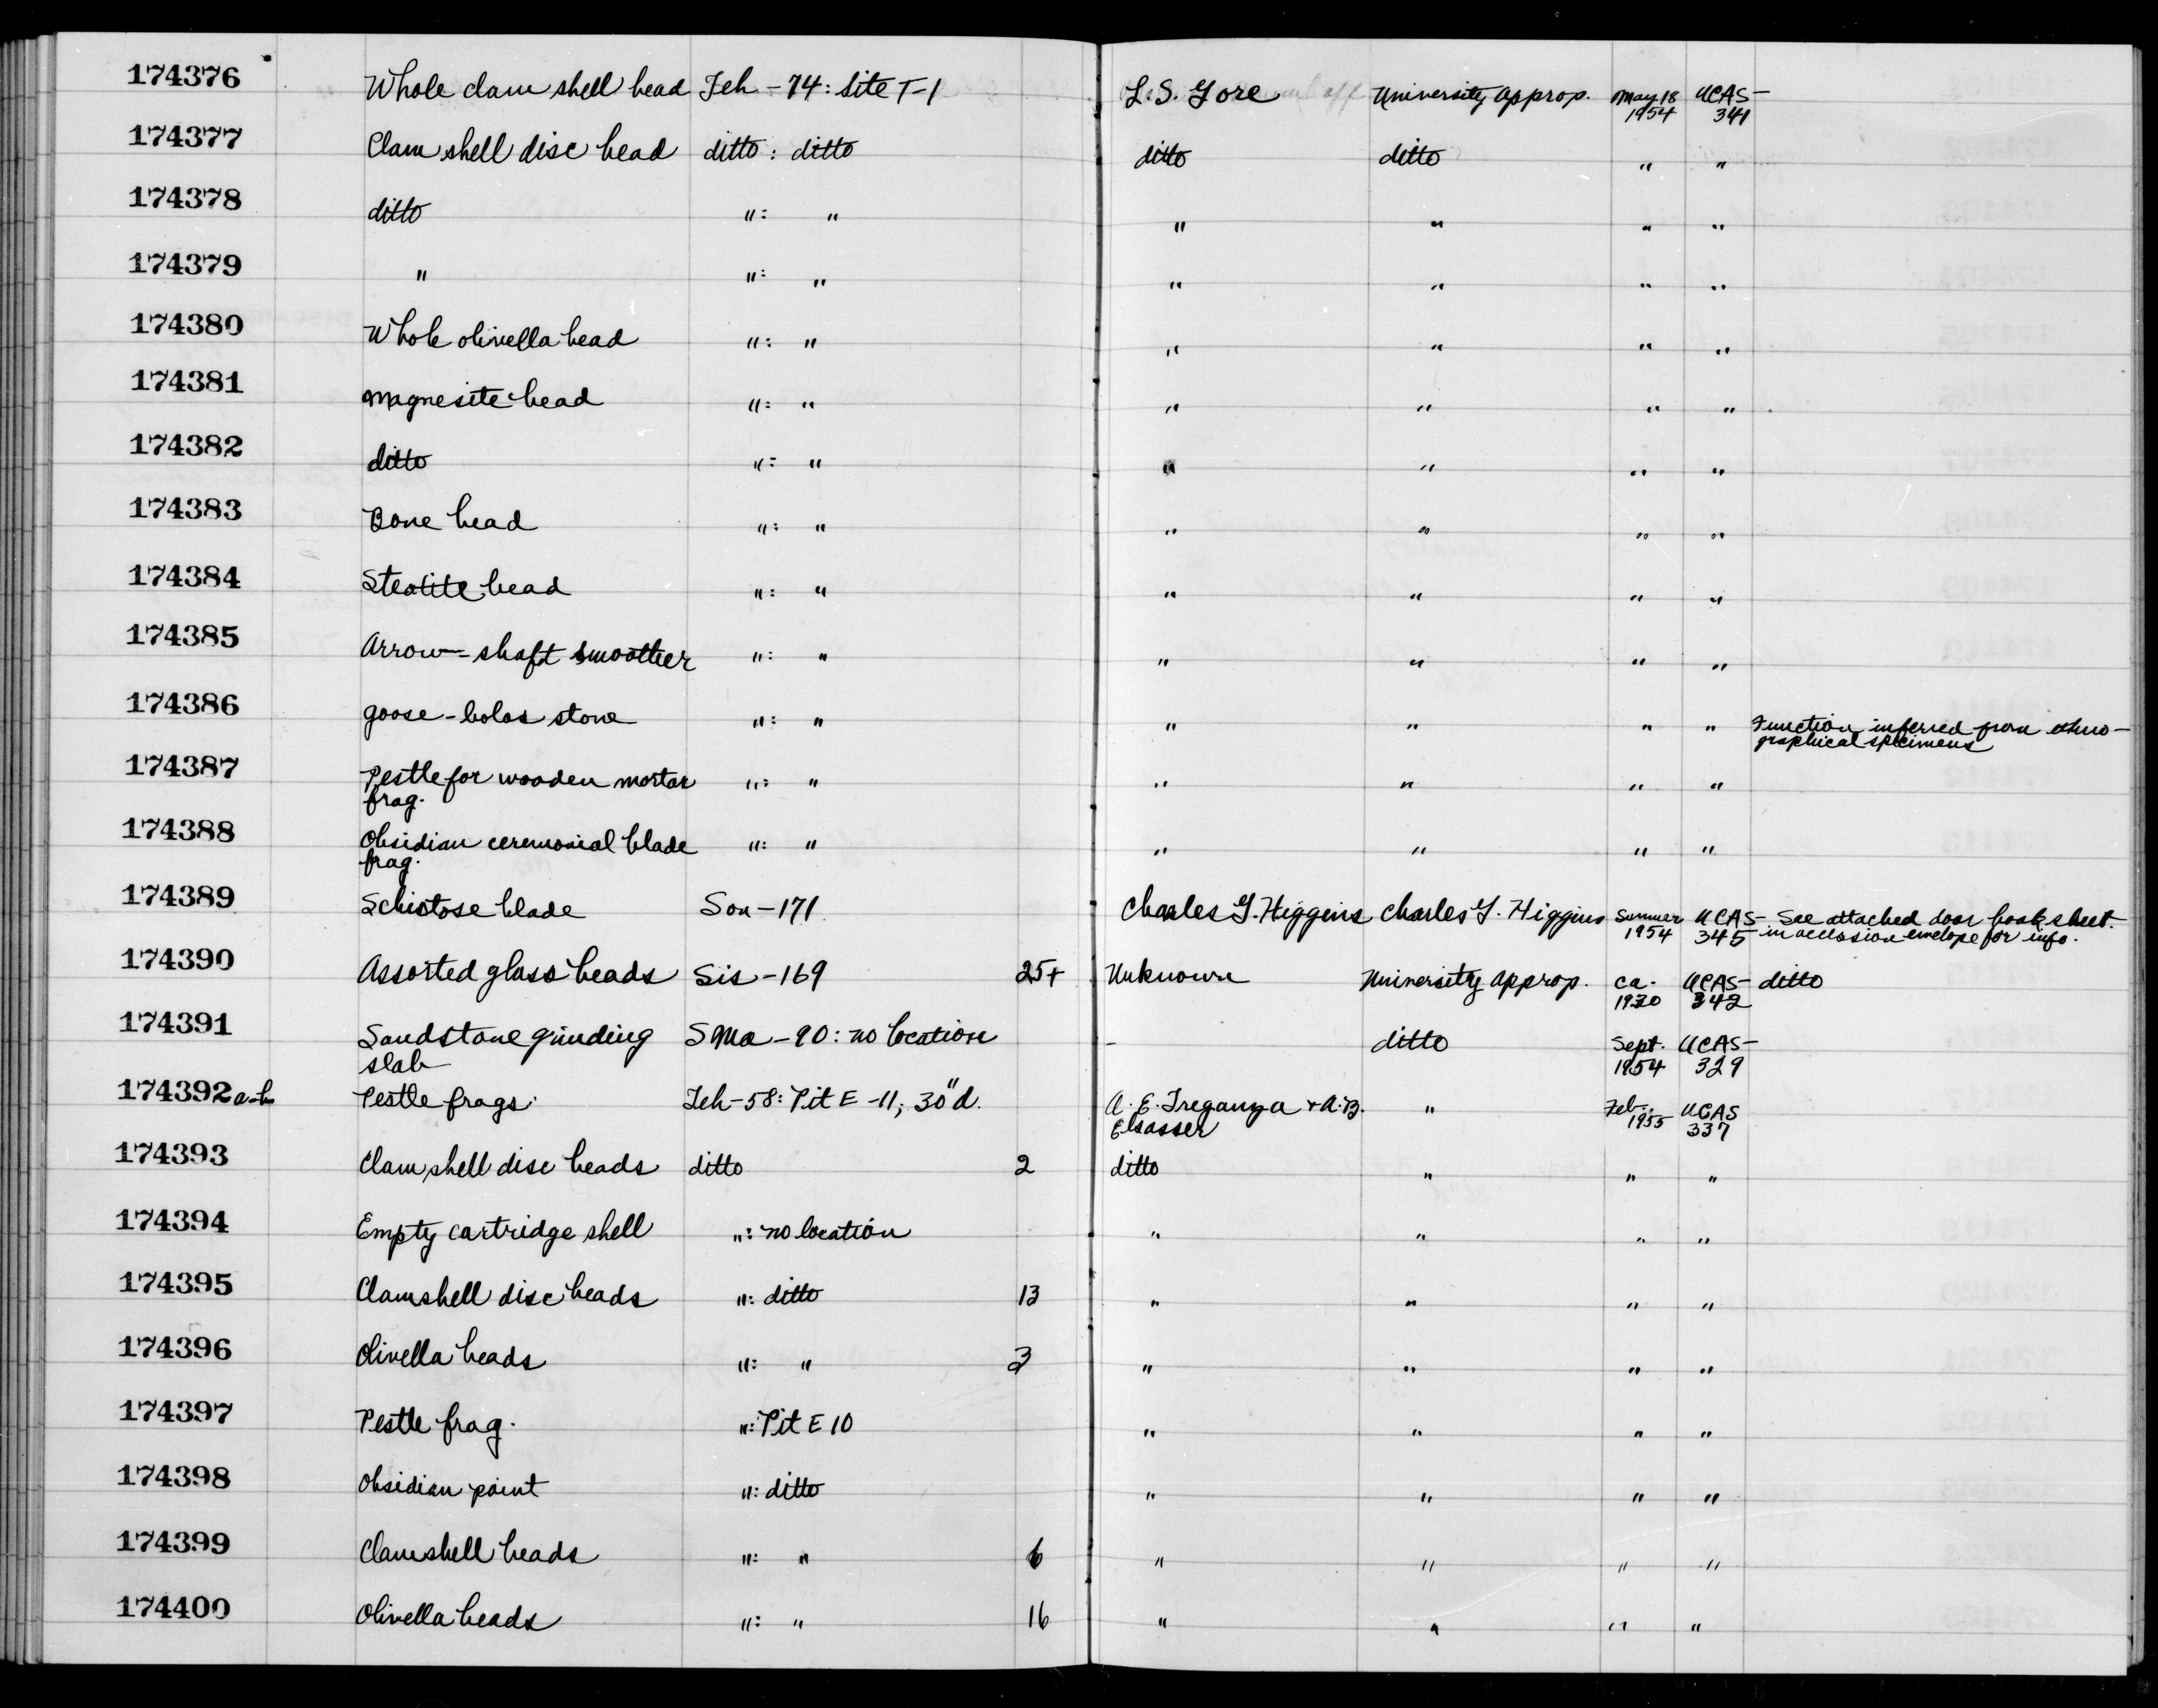 174376 Whole clam shell bead Teh - 74: Site T-1 L. S. Gore University approp. May 18 1954 UCAS-341
174377 Clam shell disc bead ditto : ditto ditto ditto " "
174378 ditto " : " " " " "
174379 " " : " " " " "
174380 Whole olivella bead " : " " " " "
174381 Magnesite bead " : " " " " "
174382 ditto " : " " " " "
174383 Bone bead " : " " " " "
174384 Steatite bead " : " " " " "
174385 Arrow-shaft smoother " : " " " " "
174386 goose-bolas stone " : " " " " " Function inferred from ethno-
graphical specimens
174387 Pestle for wooden mortar " : " " " " "
frag.
174388 Obsidian ceremonial blade " : " " " " "
frag.
174389 Schistose blade Son-171 Charles G. Higgins Charles G. Higgins Summer 1954 UCAS-345 See attached door book sheet
in accession envelope for info.
174390 Assorted glass beads Sis-169 25+ Unknown University approp. ca. 1930 UCAS-342 ditto
174391 Sandstone grinding SMa-90: no location - ditto Sept. 1954 UCAS-329
slab
174392a-b Pestle frags. Teh-58: Pit E-11; 30"d. A. E. Treganza + A.B. " Feb. 1955 UCAS 337
Elsasser
174393 Clam shell disc beads ditto 2 ditto " " "
174394 Empty cartridge shell " : no location " " " "
174395 Clamshell disc beads " : ditto 13 " " " "
174396 Olivella beads " : " 3 " " " "
174397 Pestle frag. " : Pit E 10 " " " "
174398 Obsidian point " : ditto " " " "
174399 Clamshell beads " : " 6 " " " "
174400 Olivella beads " : " 16 " " " "